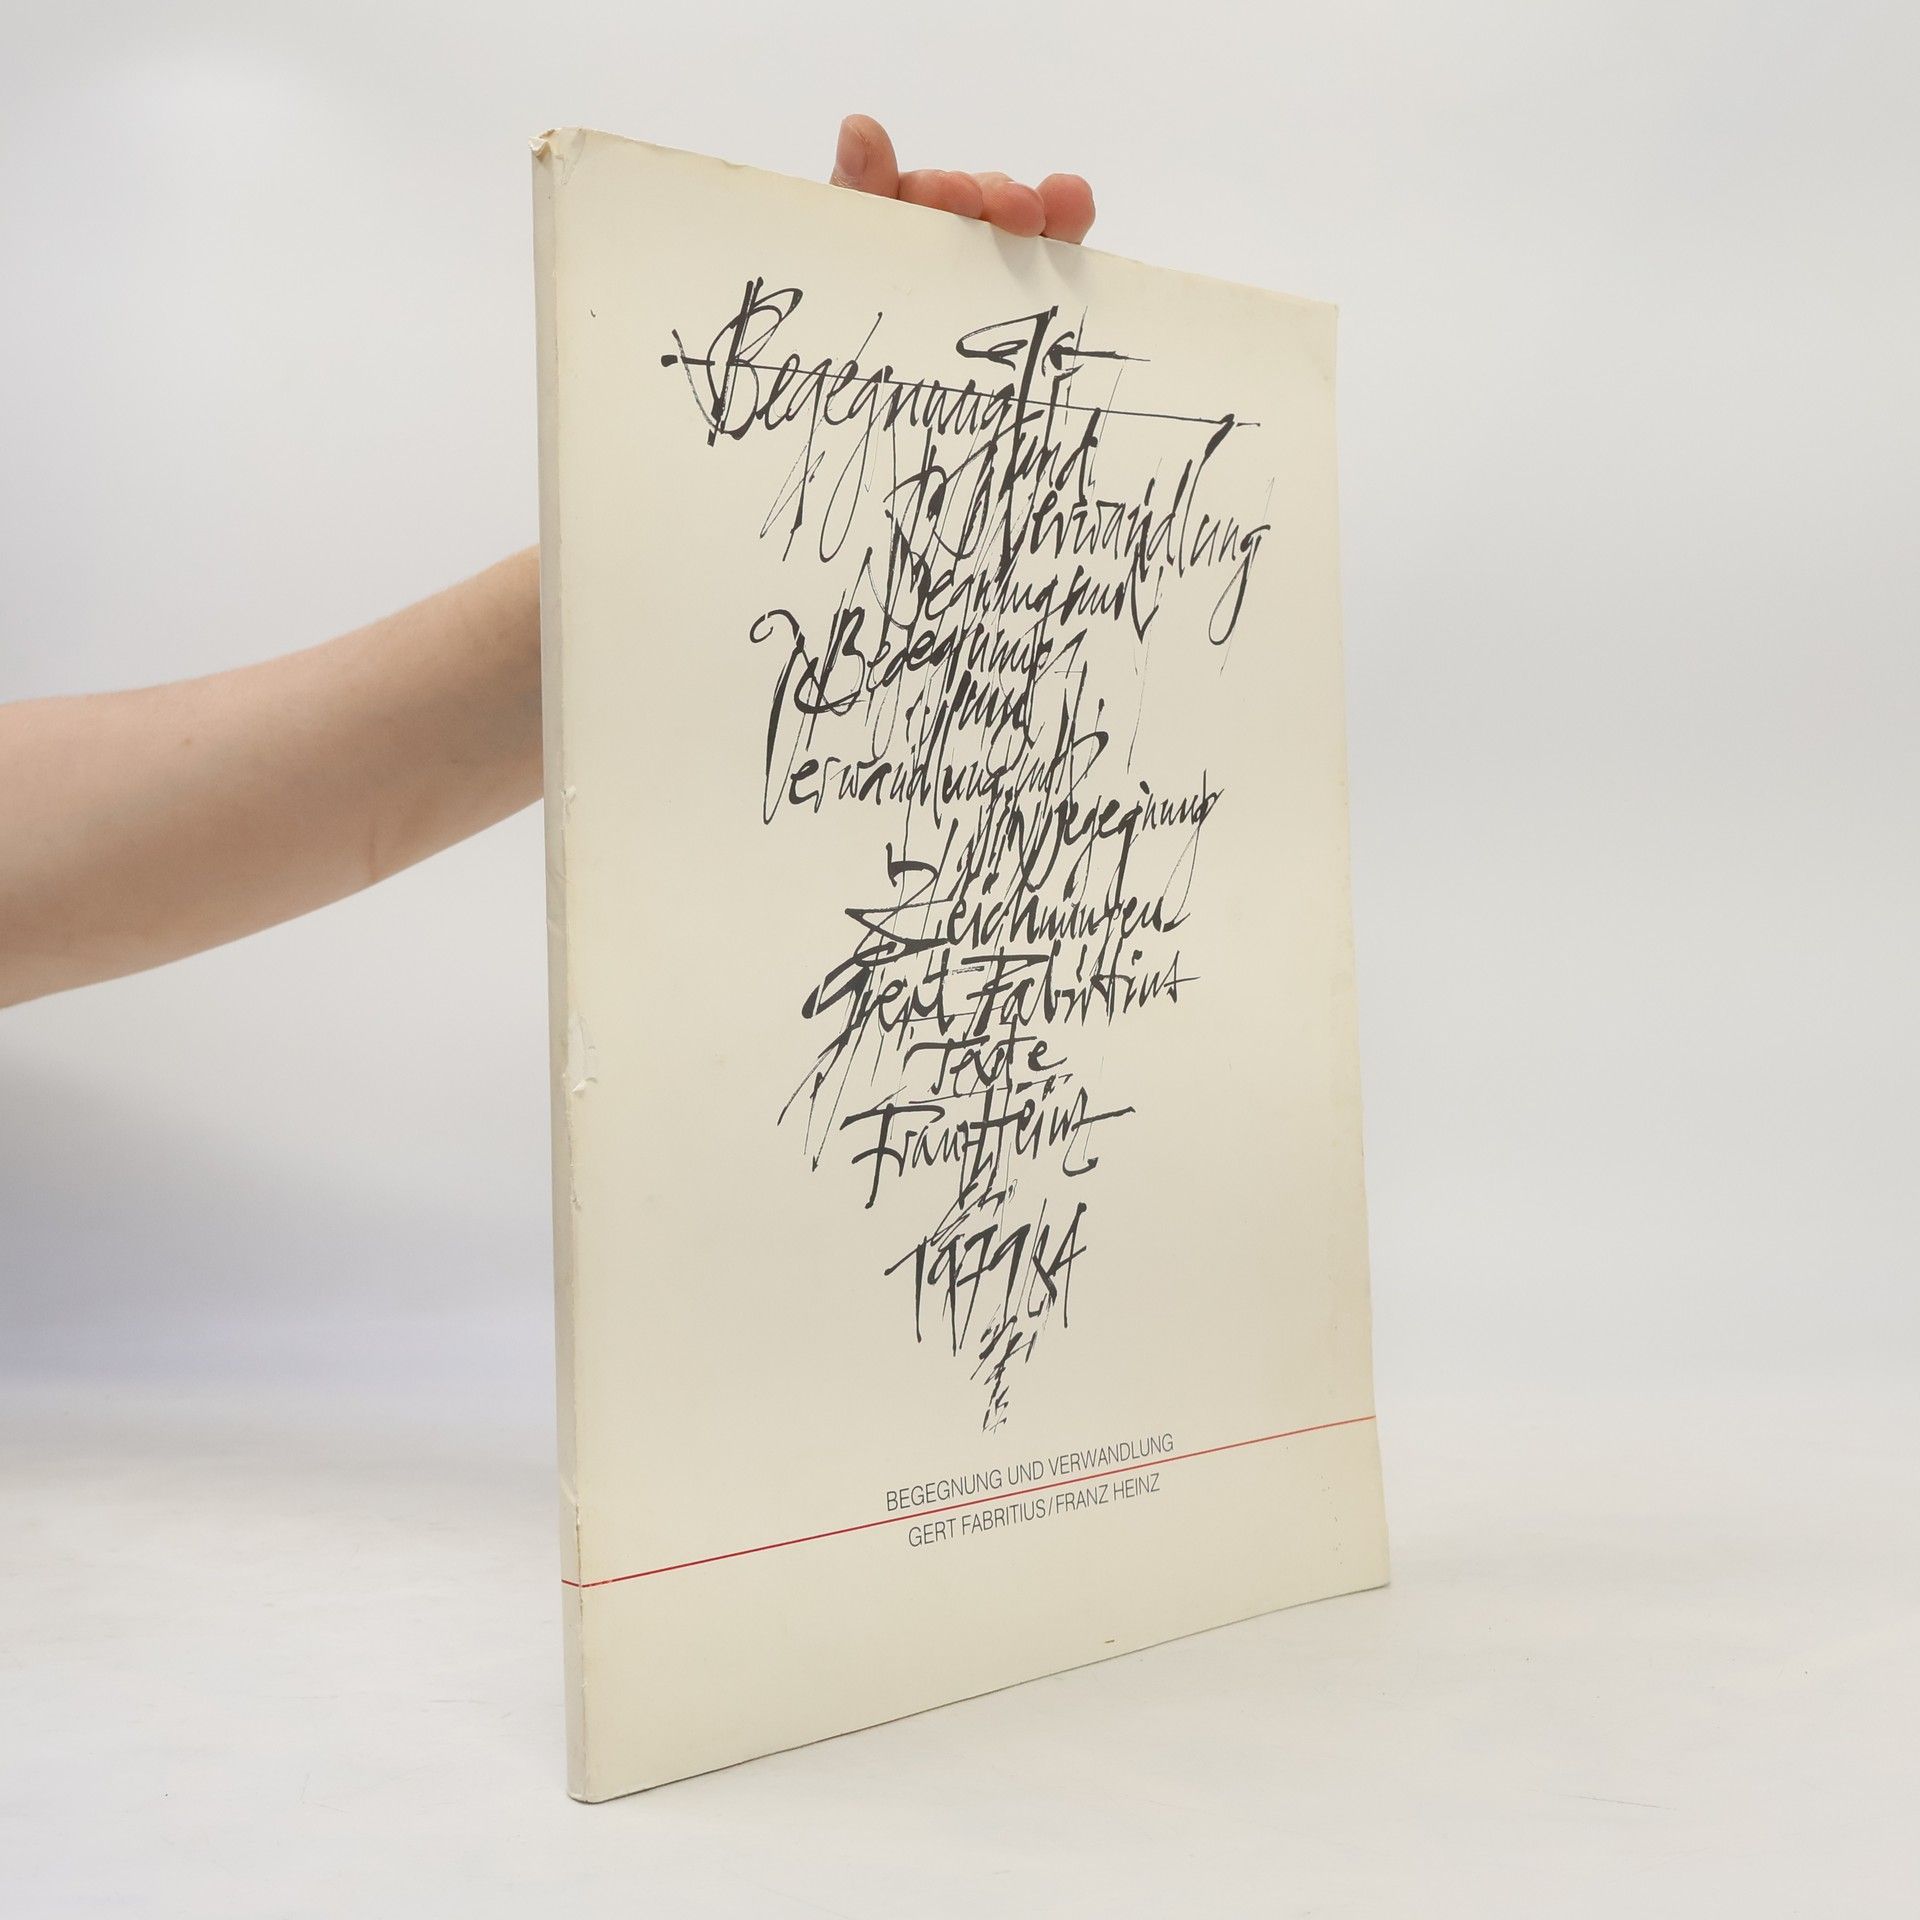 Begegnung
und
Verwandlung
Begegnung
und
Verwandlung
Begegnung
Zeichnungen
Gert Fabritius
Texte
Franz Heinz
1979/84
BEGEGNUNG UND VERWANDLUNG
GERT FABRITIUS/FRANZ HEINZ